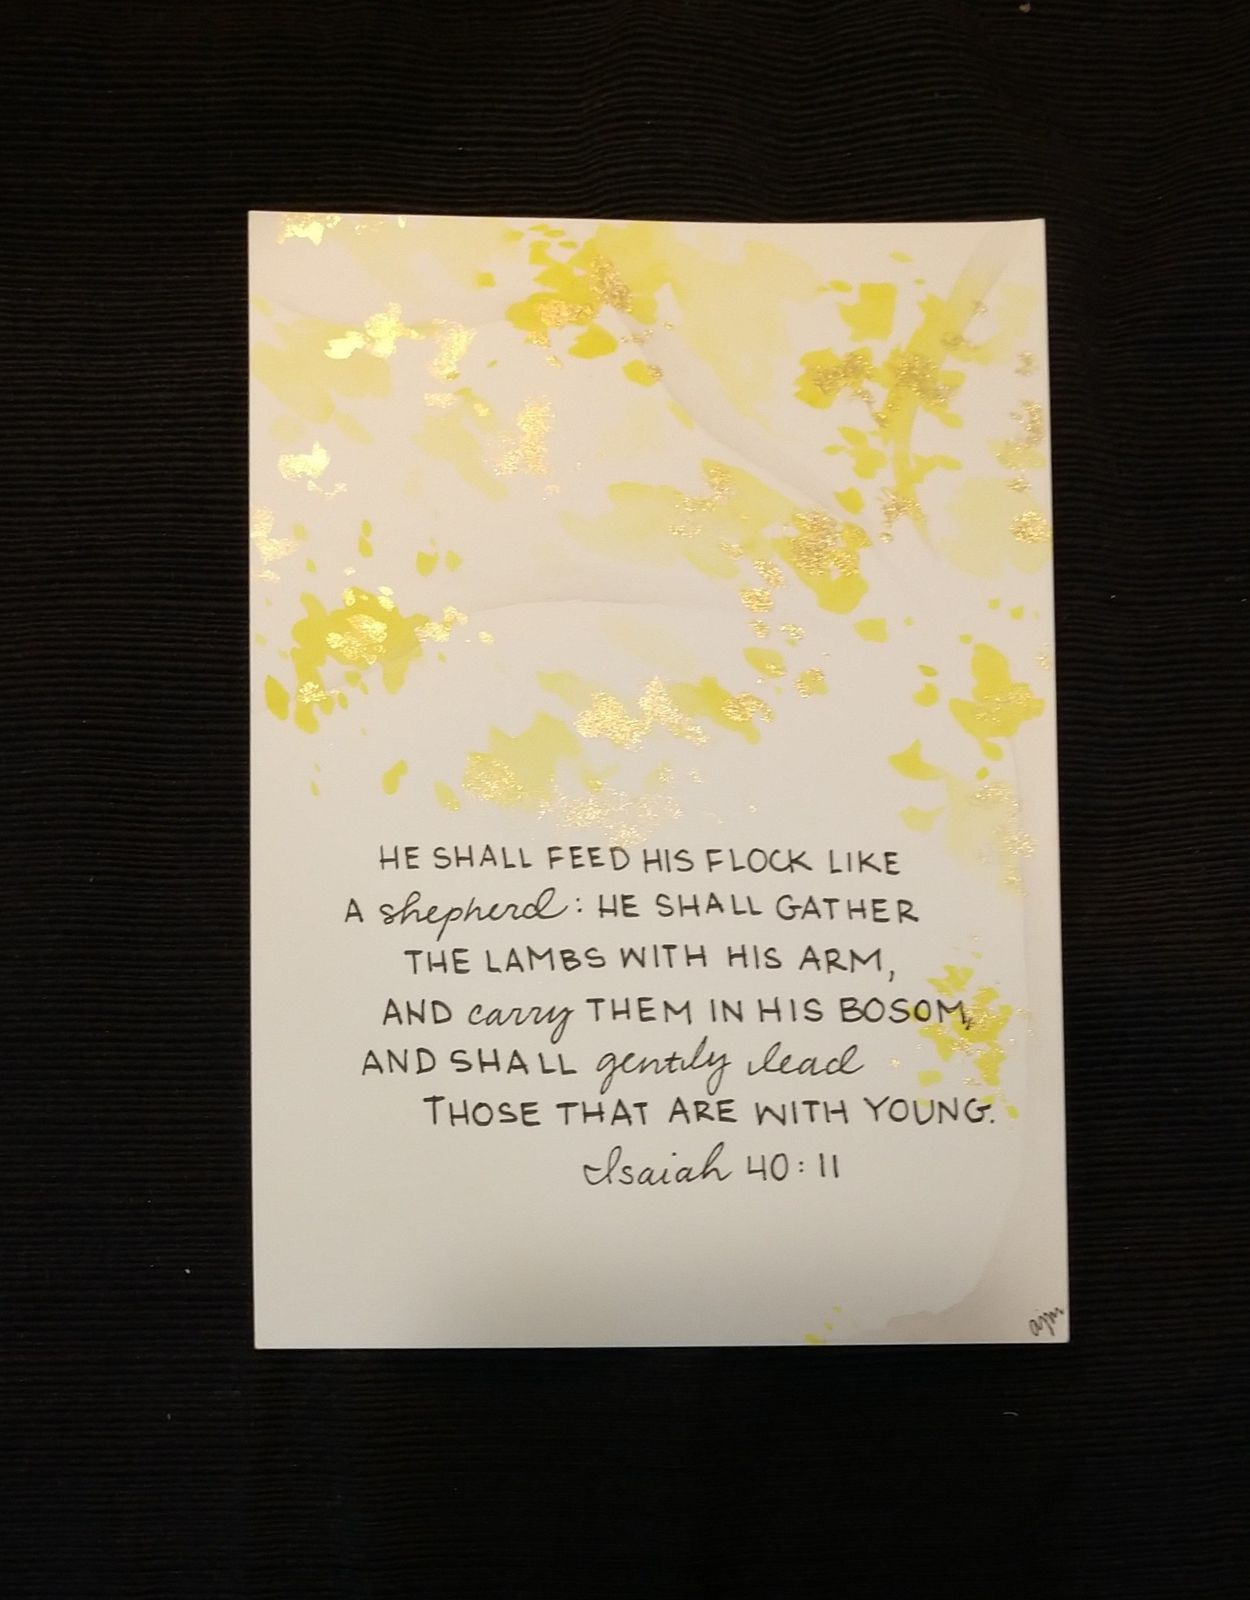 HE SHALL FEED HIS FLOCK LIKE
A shepherd: HE SHALL GATHER
THE LAMBS WITH HIS ARM,
AND carry THEM IN HIS BOSOM,
AND SHALL gently lead
THOSE THAT ARE WITH YOUNG.
Isaiah 40:11